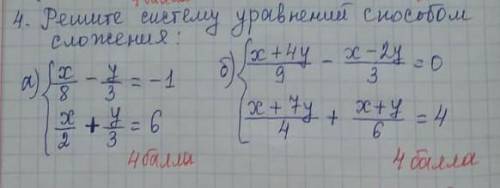 4. Решите систему уравнений способом
сложения:
а) { x/8 - y/3 = -1
x/2 + y/3 = 6
4 балла
б) { x+4y/9 - x-2y/3 = 0
x+7y/4 + x+y/6 = 4
4 балла